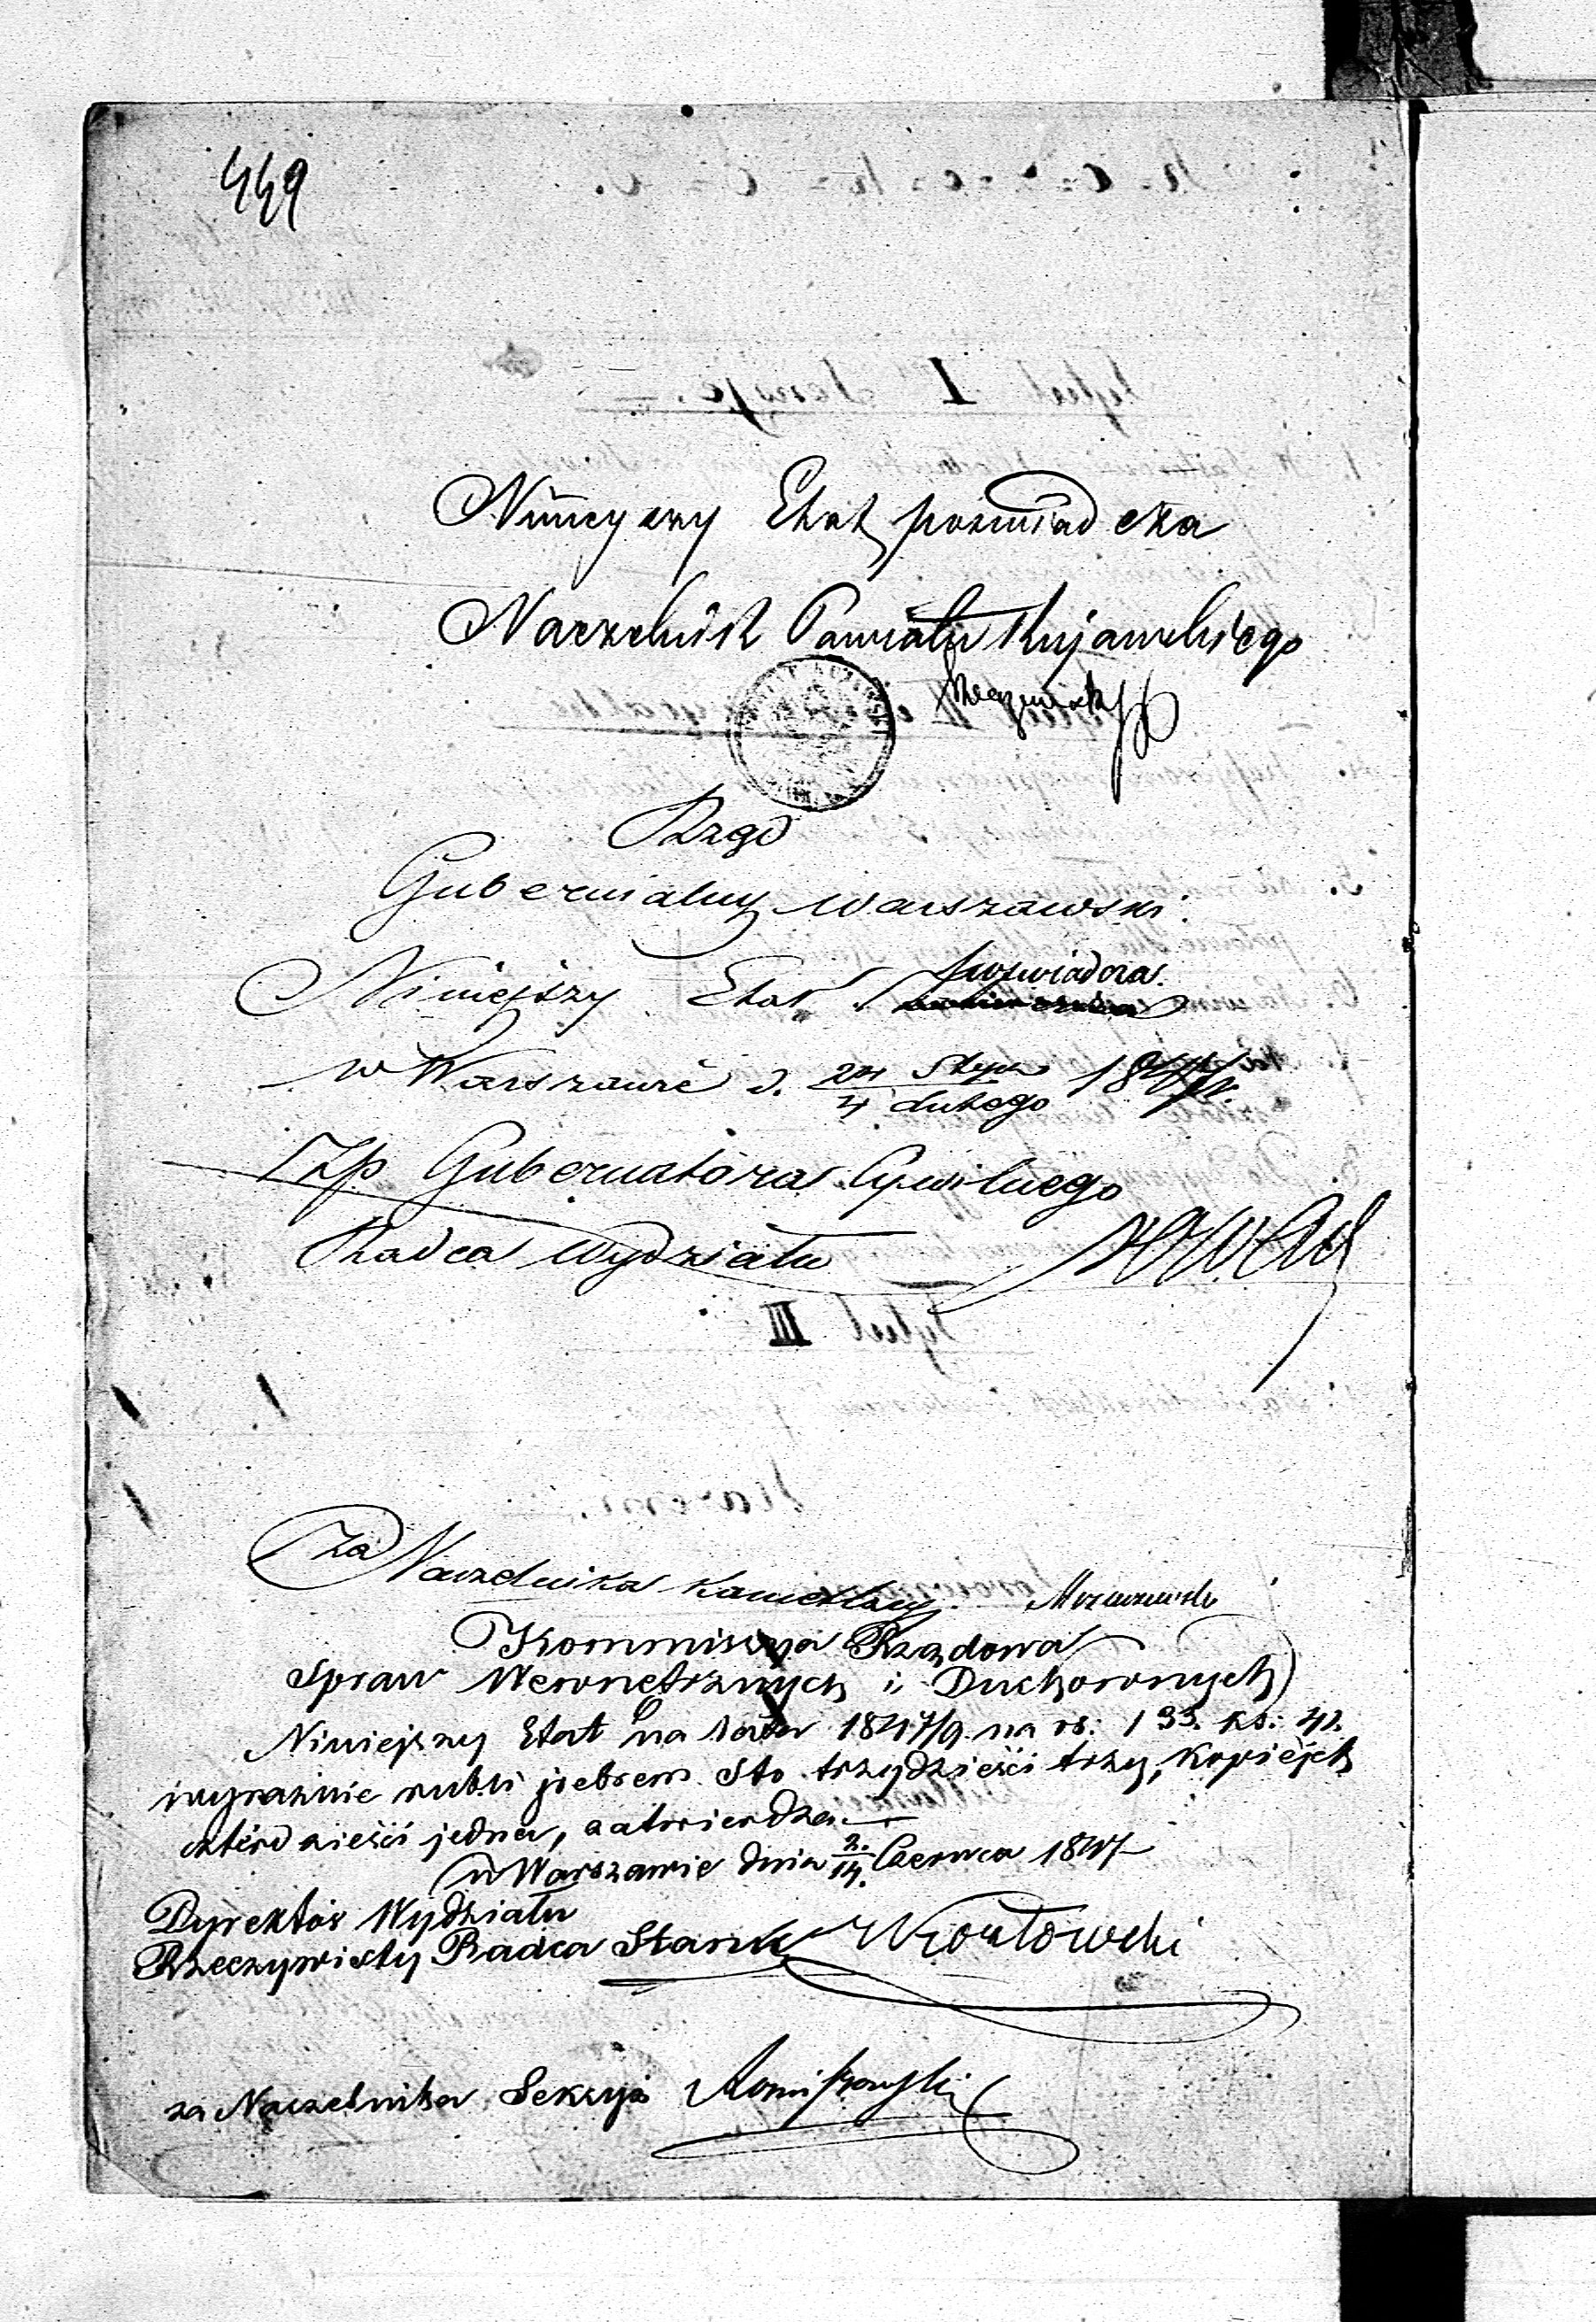 449
Niniejszy Etat poświadcza
Naczelnik Powiatu Kujawskiego
Rząd
Gubernialny Warszawski.
Niniejszy Etat poświadcza.
w Warszawie d. 24 Stycz / 4 Lutego 1847 r.
Zp Gubernatora Cywilnego
Radca Wydziału
Za Naczelnika Kancellaryi
Kommissya Rządowa
Spraw Wewnętrznych i Duchownych
Niniejszy Etat na lata 1847/9 na rs: 133. ko: 41.
wyraźnie rubli srebrem Sto trzydzieści trzy, kopiejek
czterdzieści jedna, zatwierdza.—
w Warszawie dnia 2./14. Czerwca 1847
Dyrektor Wydziału
Rzeczywisty Radca Stanu
za Naczelnika Sekcyi